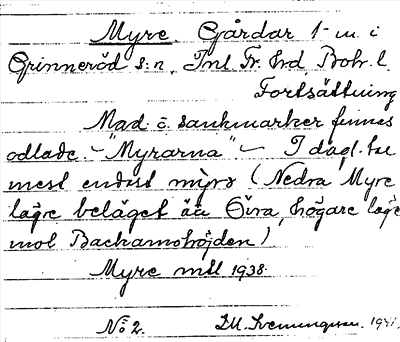 Myre. Gårdar 1- m. i
Grinneröd s:n, Inl. Fr. hd, Boh. l.
Fortsättning
Mad. o. sankmarker finnes
odlade. - "Myrarna" - I dagl. tal
mest endast myrə (Nedra Myre
lägre beläget än Övra, högare läge
mot Backamohöjden)
Myre mtl 1938.
No 2. 1941.